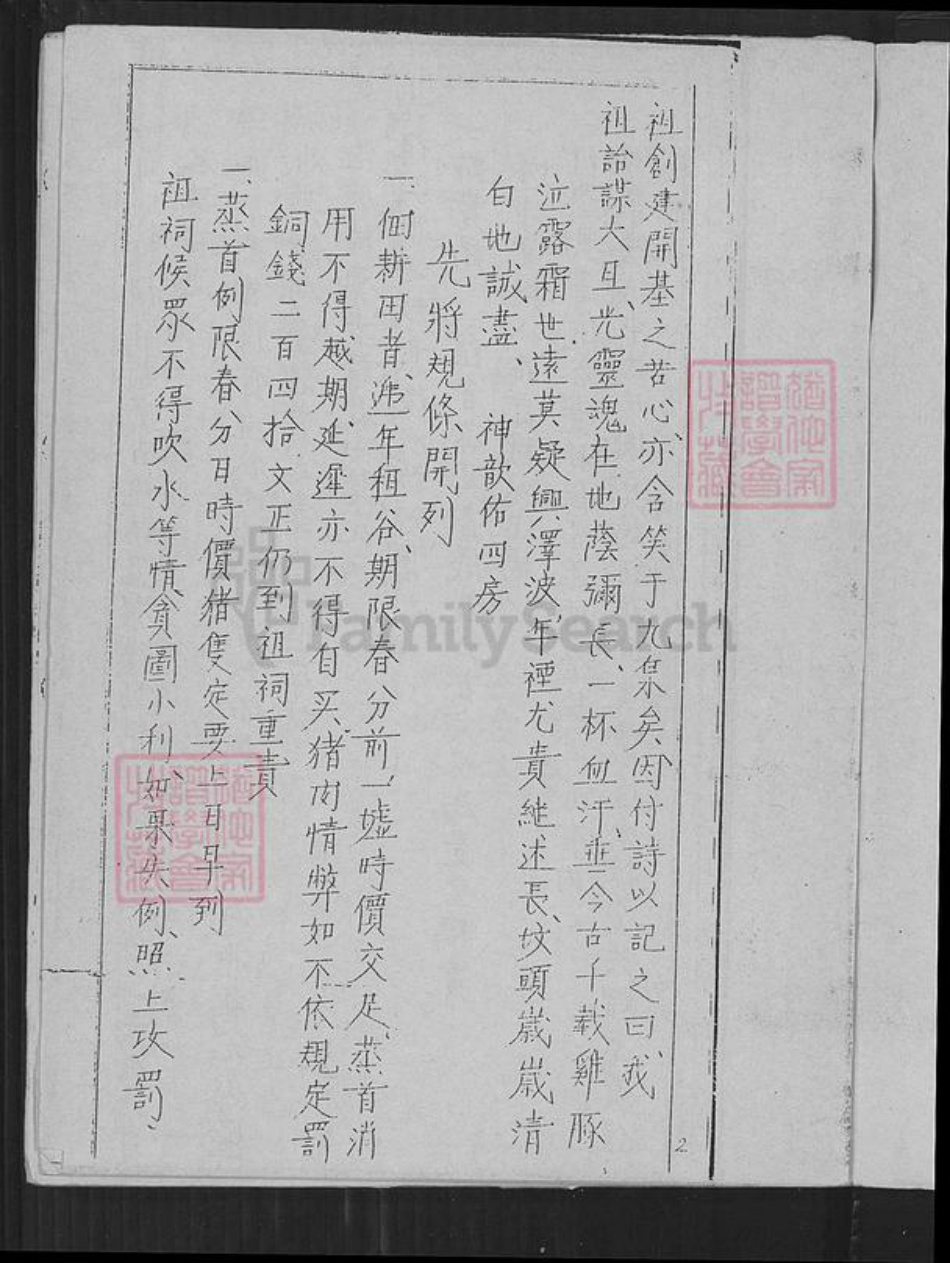 祖創建開基之苦心、亦含笑于九泉矣、因付詩以記之曰、我
祖詒謀大且、光靈魂在地蔭彌長、一杯血汗、垂今古千載雞豚、
泣露霜世遠莫疑興澤波、年禋尤貴継述長、坟頭歳歳清
白地誠盡、神歆佑四房
先將規條開列
一、佃耕田者、遞年租谷、期限春分前一墟時價交足、蒸首消
用不得越期、延遲亦不得自买猪肉情弊如不依規定罰
銅錢二百四拾文正仍到祖祠重責
一、蒸首例限春分日時價猪隻定要上日早到
祖祠候眾不得吹水等情貪圖小利、如果失例、照上攻罰、
2
FamilySearch